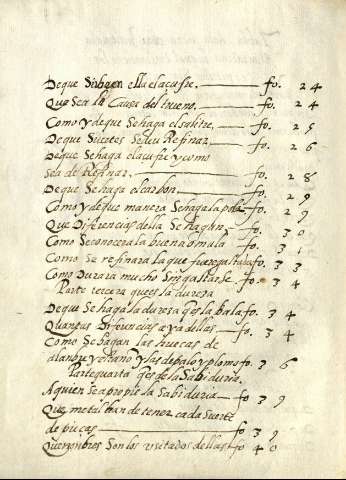 Deque Sirbuen ella el acufre. fo. 24
Que Sea la Causa del trueno. fo. 24
Como y deque Se haga el salitre. fo. 25
Deque Suertes Se deu Refinar fo. 26
Deque Se haga el acufre y como
Sea de Refinar. fo. 28
Deque Se haga el carbon. fo. 29
Como y deque manera Se haga la polᵃ fo. 29
Que Diferencias della Se hagan fo. 30
Como Se conocera la buena o mala fo. 31
Como Se refinara la que fuere gastada fo. 33
Como Durara mucho Sin gastarse fo. 34
Parte tercera que es la dureza
Deque Se haga la dureza qes la bala fo. 34
Quantas Diferencias aya dellas fo. 34
Como Se hagan las huecas de
alanbre y estaño y las de palo y plomo fo. 36
Parte quarta qes de la Sabiduria.
A quien Se a propie la Sabiduria fo. 39
Que metal han de tener cada Suerte
de pieças fo. 39
Que nonbres Son los usitados dellas fo. 40